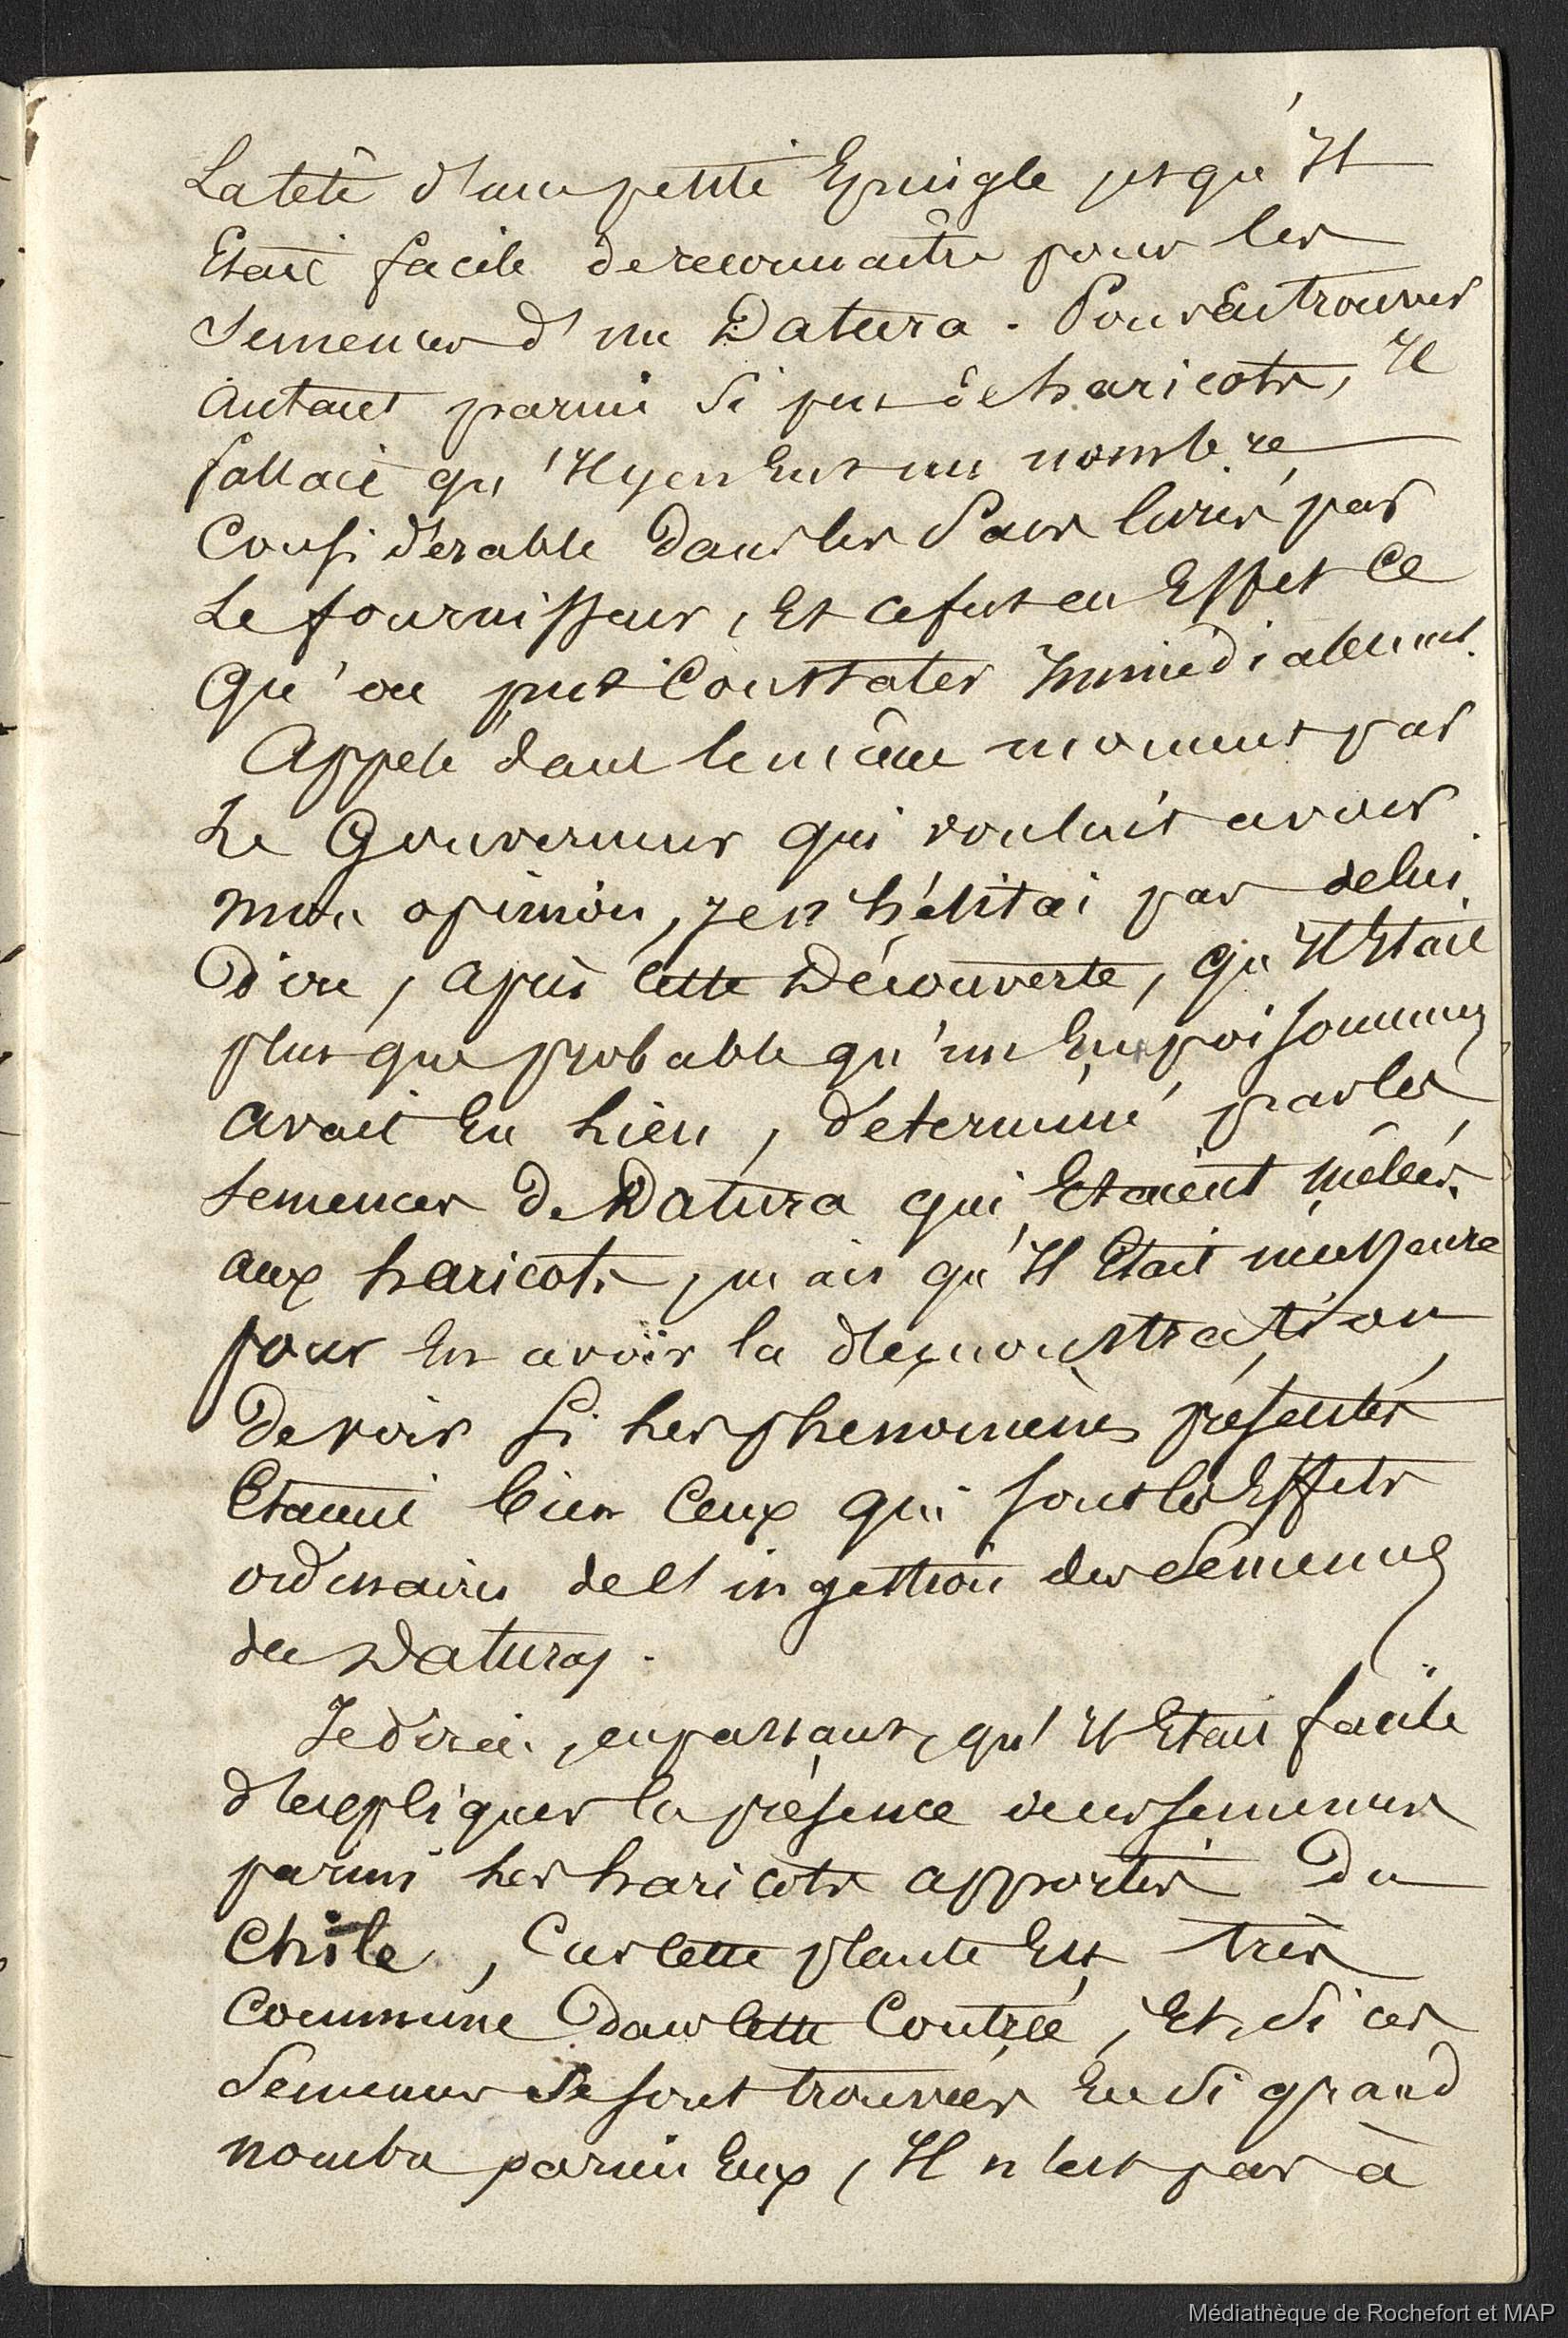 La tête d'une petite Epingle et qu'Il
Etait facile de reconnaître pour les
Semences d'un Datura. Pour en trouver
autant parmi si peu de haricots, Il
fallait qu'Il y en Eut un nombre
Considérable dans les Sacs livrés par
Le fournisseur, Et ce fut en Effet Ce
Qu'on put Constater Immédiatement.
Appelé dans le même moment par
Le Gouverneur qui voulait avoir
mon opinion, Je n'hésitai pas de lui
Dire, après Cette Découverte, qu'Il Etait
plus que probable qu'un Empoisonnemt
avait Eu Lieu, déterminé par les
Semences De Datura qui Etaient mêlées
aux haricots, mais qu'Il Etait nécessaire
pour En avoir la démonstration,
De voir Si Les phénomènes présentés
Etaient bien Ceux qui Sont les Effets
ordinaires de l'ingestion des Semences
des Daturas.
Je dirai, en passant, qu'Il Etait facile
d'expliquer la présence de ces semences
parmi Les haricots apportés Du
Chile, Car Cette plante Est très
Commune Dans Cette Contrée, Et, Si ces
Semences Se sont trouvées En Si grand
nombre parmi Eux, Il n'est pas à
Médiathèque de Rochefort et MAP